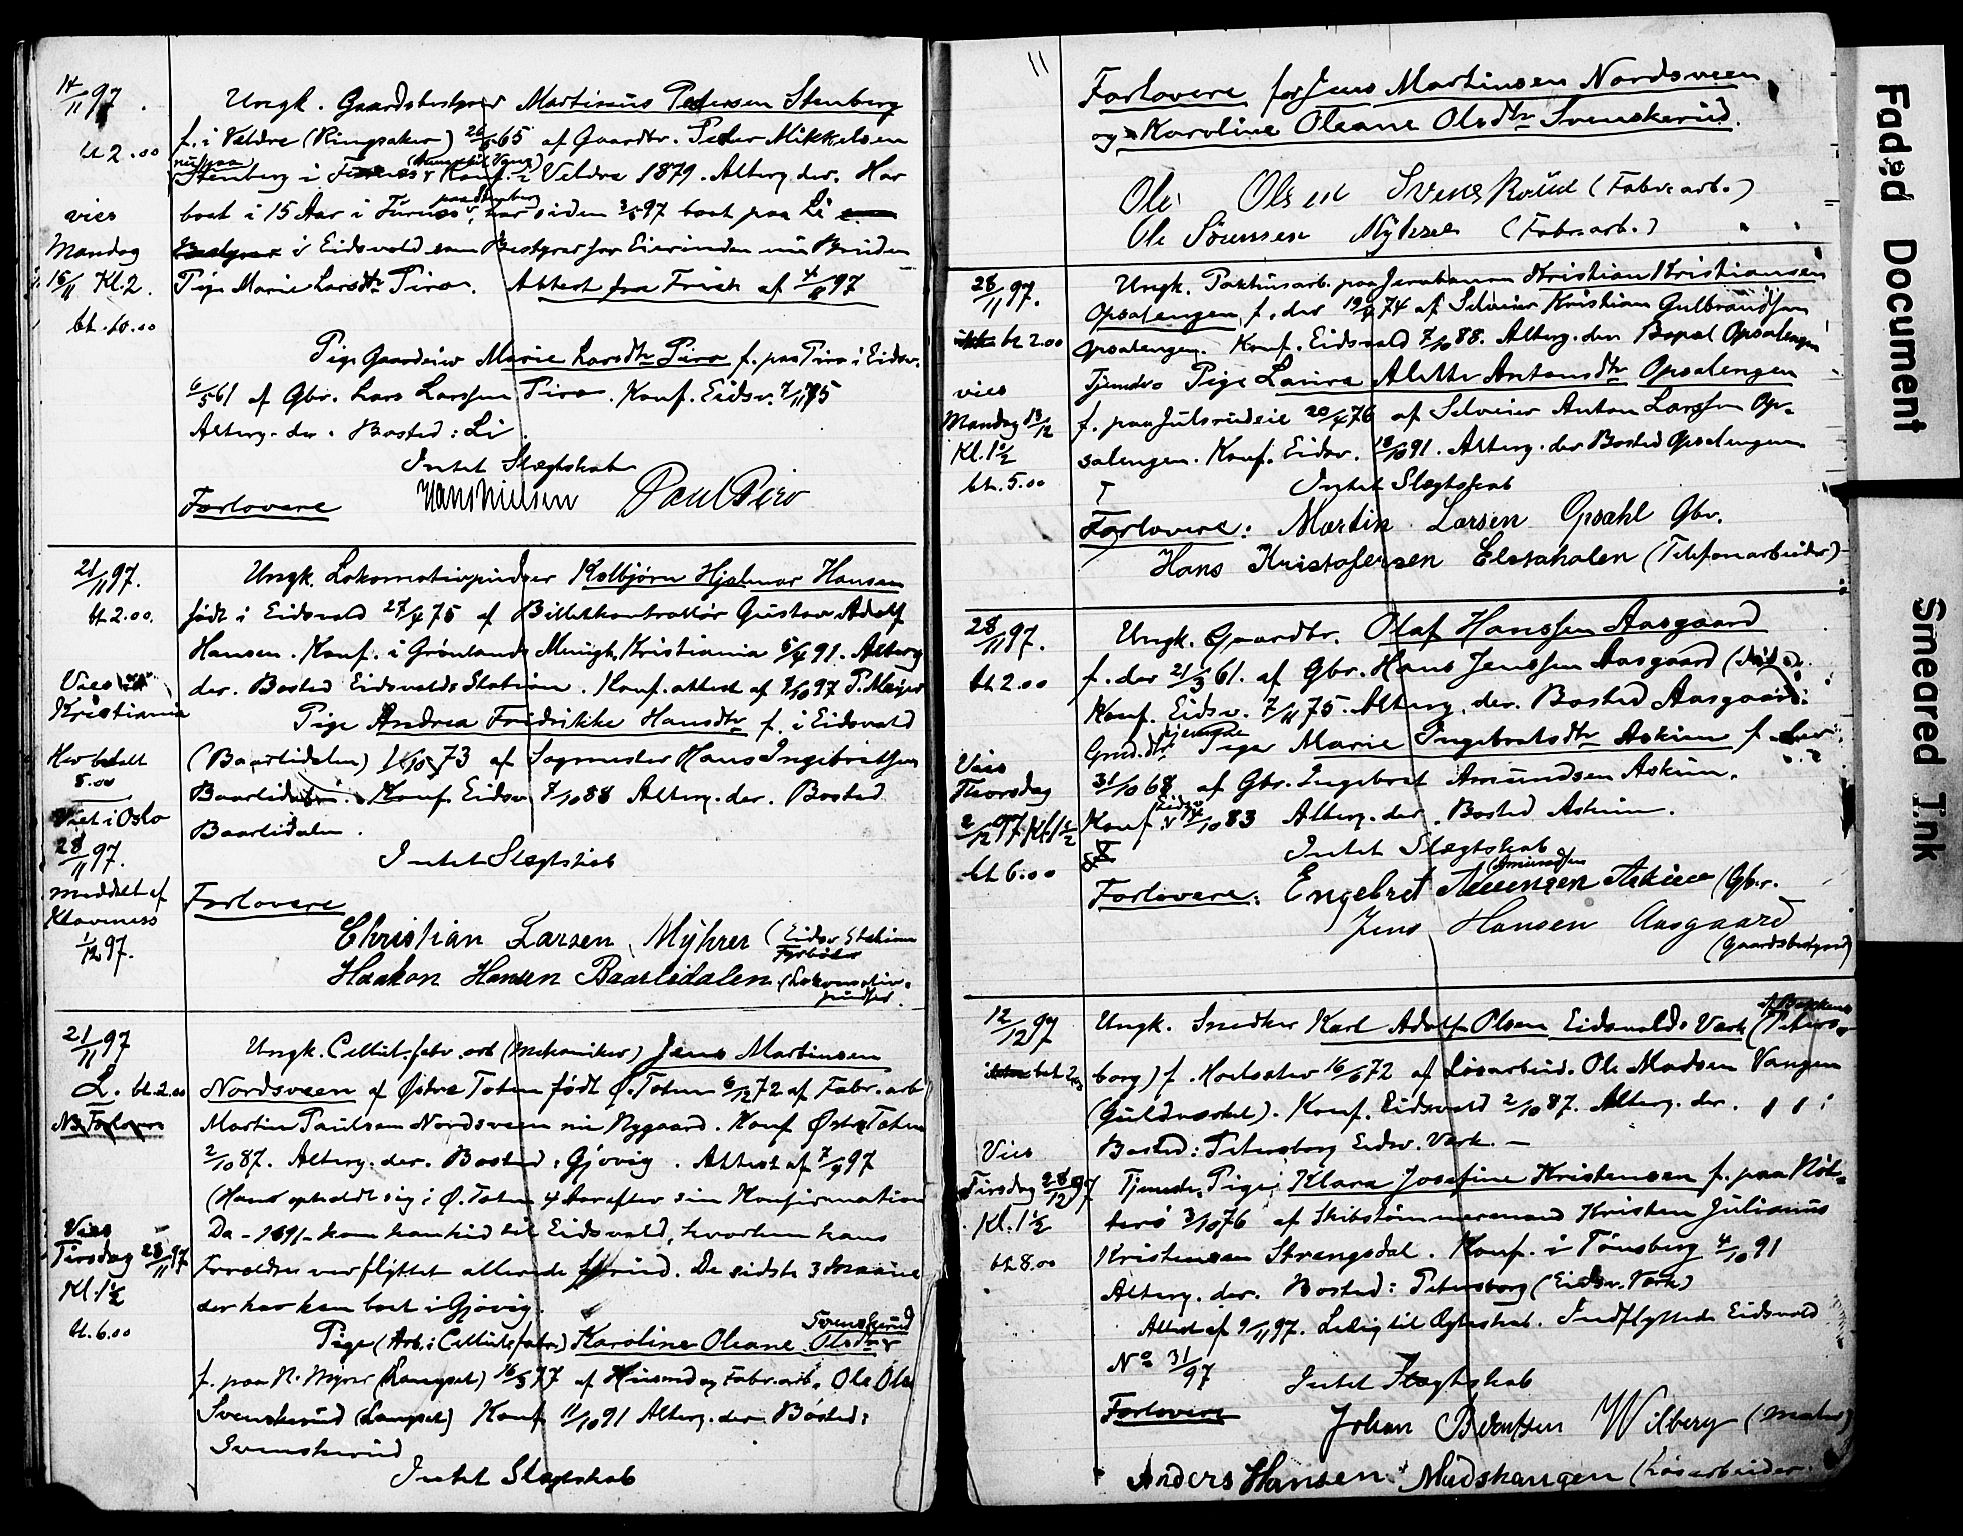 14/11 97.
bt 2.00
vies
Mandag
15/11 Kl. 2.
bt. 10.00
Ungk. Gaardsbestyrer Martinus Pedersen Stenberg
f. i Veldre (Ringsaker) 65 af Gaardbr. Peder Mikkelsen
Stenberg i Furnes Konf. i Veldre 1879. Alterg. der. Har
boet i 15 Aar i Furnes, har siden 3/5 97 boet paa Li
i Eidsvold som Bestyrer for Eierinden nu Bruden
Pige Marie Larsdtr Piro. Attest fra Frisk af 97
Pige Gaardeier Marie Larsdtr Piro f. paa Piro i Eidsv.
6/5 61 af Gbr. Lars Larssen Piro. Konf. Eidsv. 7/11 75
Alterg. der. Bosted: Li.
Intet Slægtskab
Forlovere Hans Nielsen Paul Piro
21/11 97.
bt 2.00.
Vies i
Kristiania
Her betalt
8.00
Viet i Oslo
28/11 97.
meddelt af
Klaveness
1/12 97.
Ungk. Lokomotivpudser Kolbjørn Hjalmar Hansen
født i Eidsvold 27/4 75 af Billetkontrollør Gustav Adolf
Hansen. Konf. i Grønlands Menigh. Kristiania 5/4 91. Alterg
der. Bosted Eidsvolds Station. Konf. attest af 97
Pige Andrea Fridrikke Hansdtr f. i Eidsvold
(Baarlidalen) 73 af Sagmester Hans Ingebritsen
Baarlidalen. Konf. Eidsv. 7/10 88 Alterg. der. Bosted
Baarlidalen.
Intet Slægtskab
Forlovere
Christian Larsen Myhrer (Eidsv. Station
Fyrbøter
Haakon Hansen Baarlidalen (Lokomotiv-
pudser.
21/11 97
L. bt. 2.00
NB Forlovere
Vies
Tirsdag 23/11 97
Kl. 1½
bt. 6.00
Ungk. Cellul. fabr. arb (Mekaniker) Jens Martinsen
Nordsveen af Østre Toten født Ø. Toten 6/12 72 af Fabr. arb
Martin Paulsen Nordsveen nu Nygaard. Konf Østre Toten
2/10 87. Alterg. der. Bosted: Gjøvig. Attest af 7/9 97
(Hans opholdt sig i Ø. Toten 4 Aar efter sin Konfirmation
Da - 1891 - kom han hid til Eidsvold, hvorhen hans
Forældre var flyttet allerede forud. De sidste 3 Maane
der har han boet i Gjøvig.
Svenskerud
Pige (Arb. i Cellulosefabr.) Karoline Oleane Olsdtr
f. paa N. Myrer (Langset) 16/5 77 af Husmd og Fabr. arb. Ole Olsen
Svenskerud (Langset) Konf 11/10 91 Alterg. der. Bosted:
Svenskerud
Intet Slægtskab
11
Forlovere for Jens Martinsen Nordsveen
og Karoline Oleane Olsdtr Svenskerud.
Ole Olsen Svenskerud (Fabr. arb.)
Ole Sørensen (Fabr. arb.)
28/11 97.
bt 2.00
vies
Mandag 13/12
Kl. 1½
bt. 5.00
Ungk. Pakhusarb. paa Jernbanen Kristian Kristiansen
Opsalengen f. der 74 af Selveier Kristian Gulbrandsen
Opsalengen. Konf. Eidsvold 7/10 88. Alterg. der Bopæl Opsalengen
Tjenede Pige Laura Alette Antonsdtr Opsalengen
f. paa Julsrudeie 20/4 76 af Selveier Anton Larssen Op-
salengen. Konf. Eidsv. 18/10 91. Alterg. der Bosted Opsalengen
Intet Slægtskab
Forlovere: Martin Larsen Opsahl Gbr.
Hans Kristofersen Elstaholen (Telefonarbeider)
28/11 97.
bt 2.00
Vies
Thorsdag
2/12 97 Kl. 1½
bt 6.00
Ungk. Gaardbr. Olaf Hanssen Aasgaard
f. der 21/3 61. af Gbr. Hans Jenssen Aasgaard
Konf. Eidsv. 7/11 75. Alterg. der. Bosted Aasgaard.
hjemme
Grd.dtr Pige Marie Ingebretsdtr Askim f. der
31/10 68 af Gbr. Ingebret Amundsen Askim.
Konf. Eidsv 83 Alterg. der. Bosted Askim.
Intet Slægtskab
(Amundsen
Forlovere: Engebret Amensen Askim (Gbr.
Jens Hansen Aasgaard
(Gaardsbestyrer)
12/12 97
bt 2.
Vies
Tirsdag 28/12 97
Kl. 1½
bt 8.00
Ungk. Snedker Karl Adolf Olsen Eidsvolds Værk (Peters-
borg) f. 16/6 72 af Løsarbeid. Ole Madsen Vangen
(Guldværket). Konf. Eidsvold 2/10 87. Alterg. der.
Bosted: Petersborg Eidsv. Værk. -
Tjenede Pige Klara Josefine Kristensen f. paa Nøt-
terø 3/10 76 af Skibstømmermand Kristen Julianus
Kristensen Strengsdal. Konf. i Tønsberg 4/10 91
Alterg. der. Bosted: Petersborg (Eidsv. Værk)
Attest af 9/11 97. Ledig til Ægteskab. Indflyttede Eidsvold
No 31/97
Intet Slægtskab
Forlovere Johan Berntsen Wilberg (maler)
Anders Hansen Mudshaugen (Løsarbeider.
Faded Document
Smeared Ink